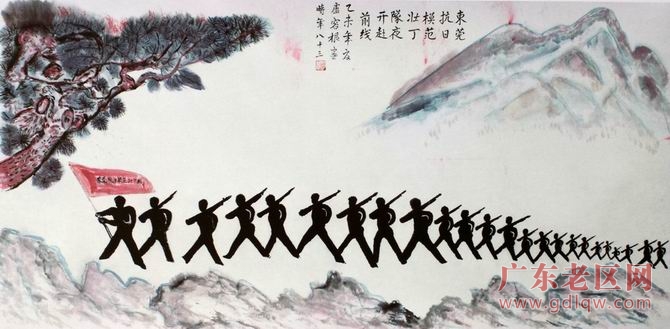 東莞
抗日
模范
壮丁
隊夜
开赴
前线
乙未年
時年八十三
广东老区网
www.gdlqw.com